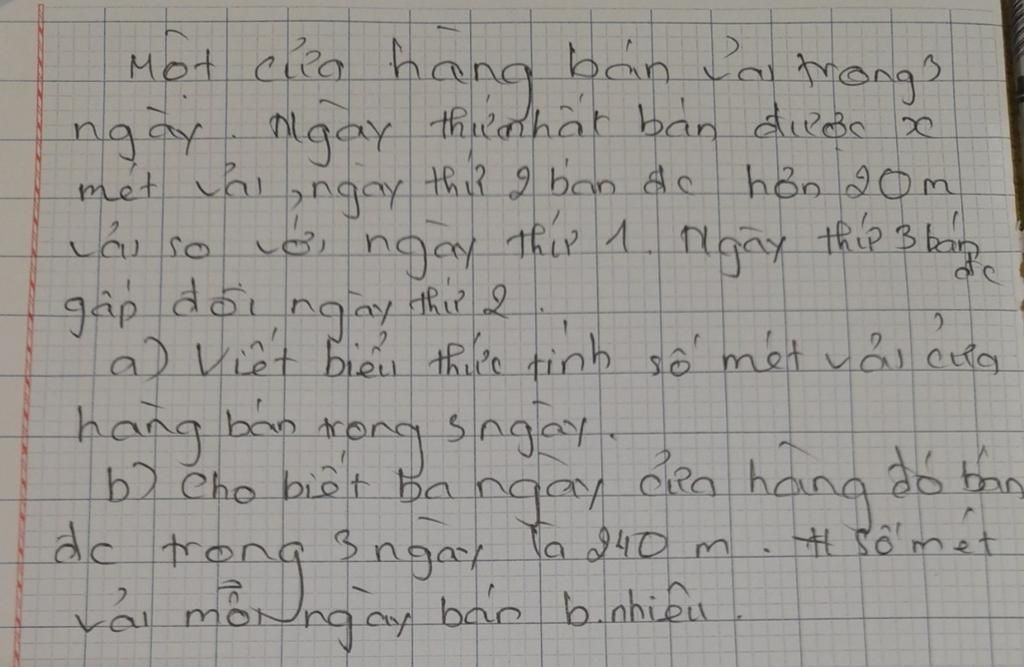 Một cửa hàng bán vải trong 3
ngày. Ngày thứ nhất bán được x
mét vải, ngày thứ 2 bán đc hơn 20m
vải so với ngày thứ 1. Ngày thứ 3 bán
đc
gấp đôi ngày thứ 2.
a) Viết biểu thức tính số mét vải cửa
hàng bán trong 3 ngày.
b) Cho biết ba ngày cửa hàng đó bán
đc trong 3 ngày là 240 m. số mét
vải mỗi ngày bán b.nhiêu.